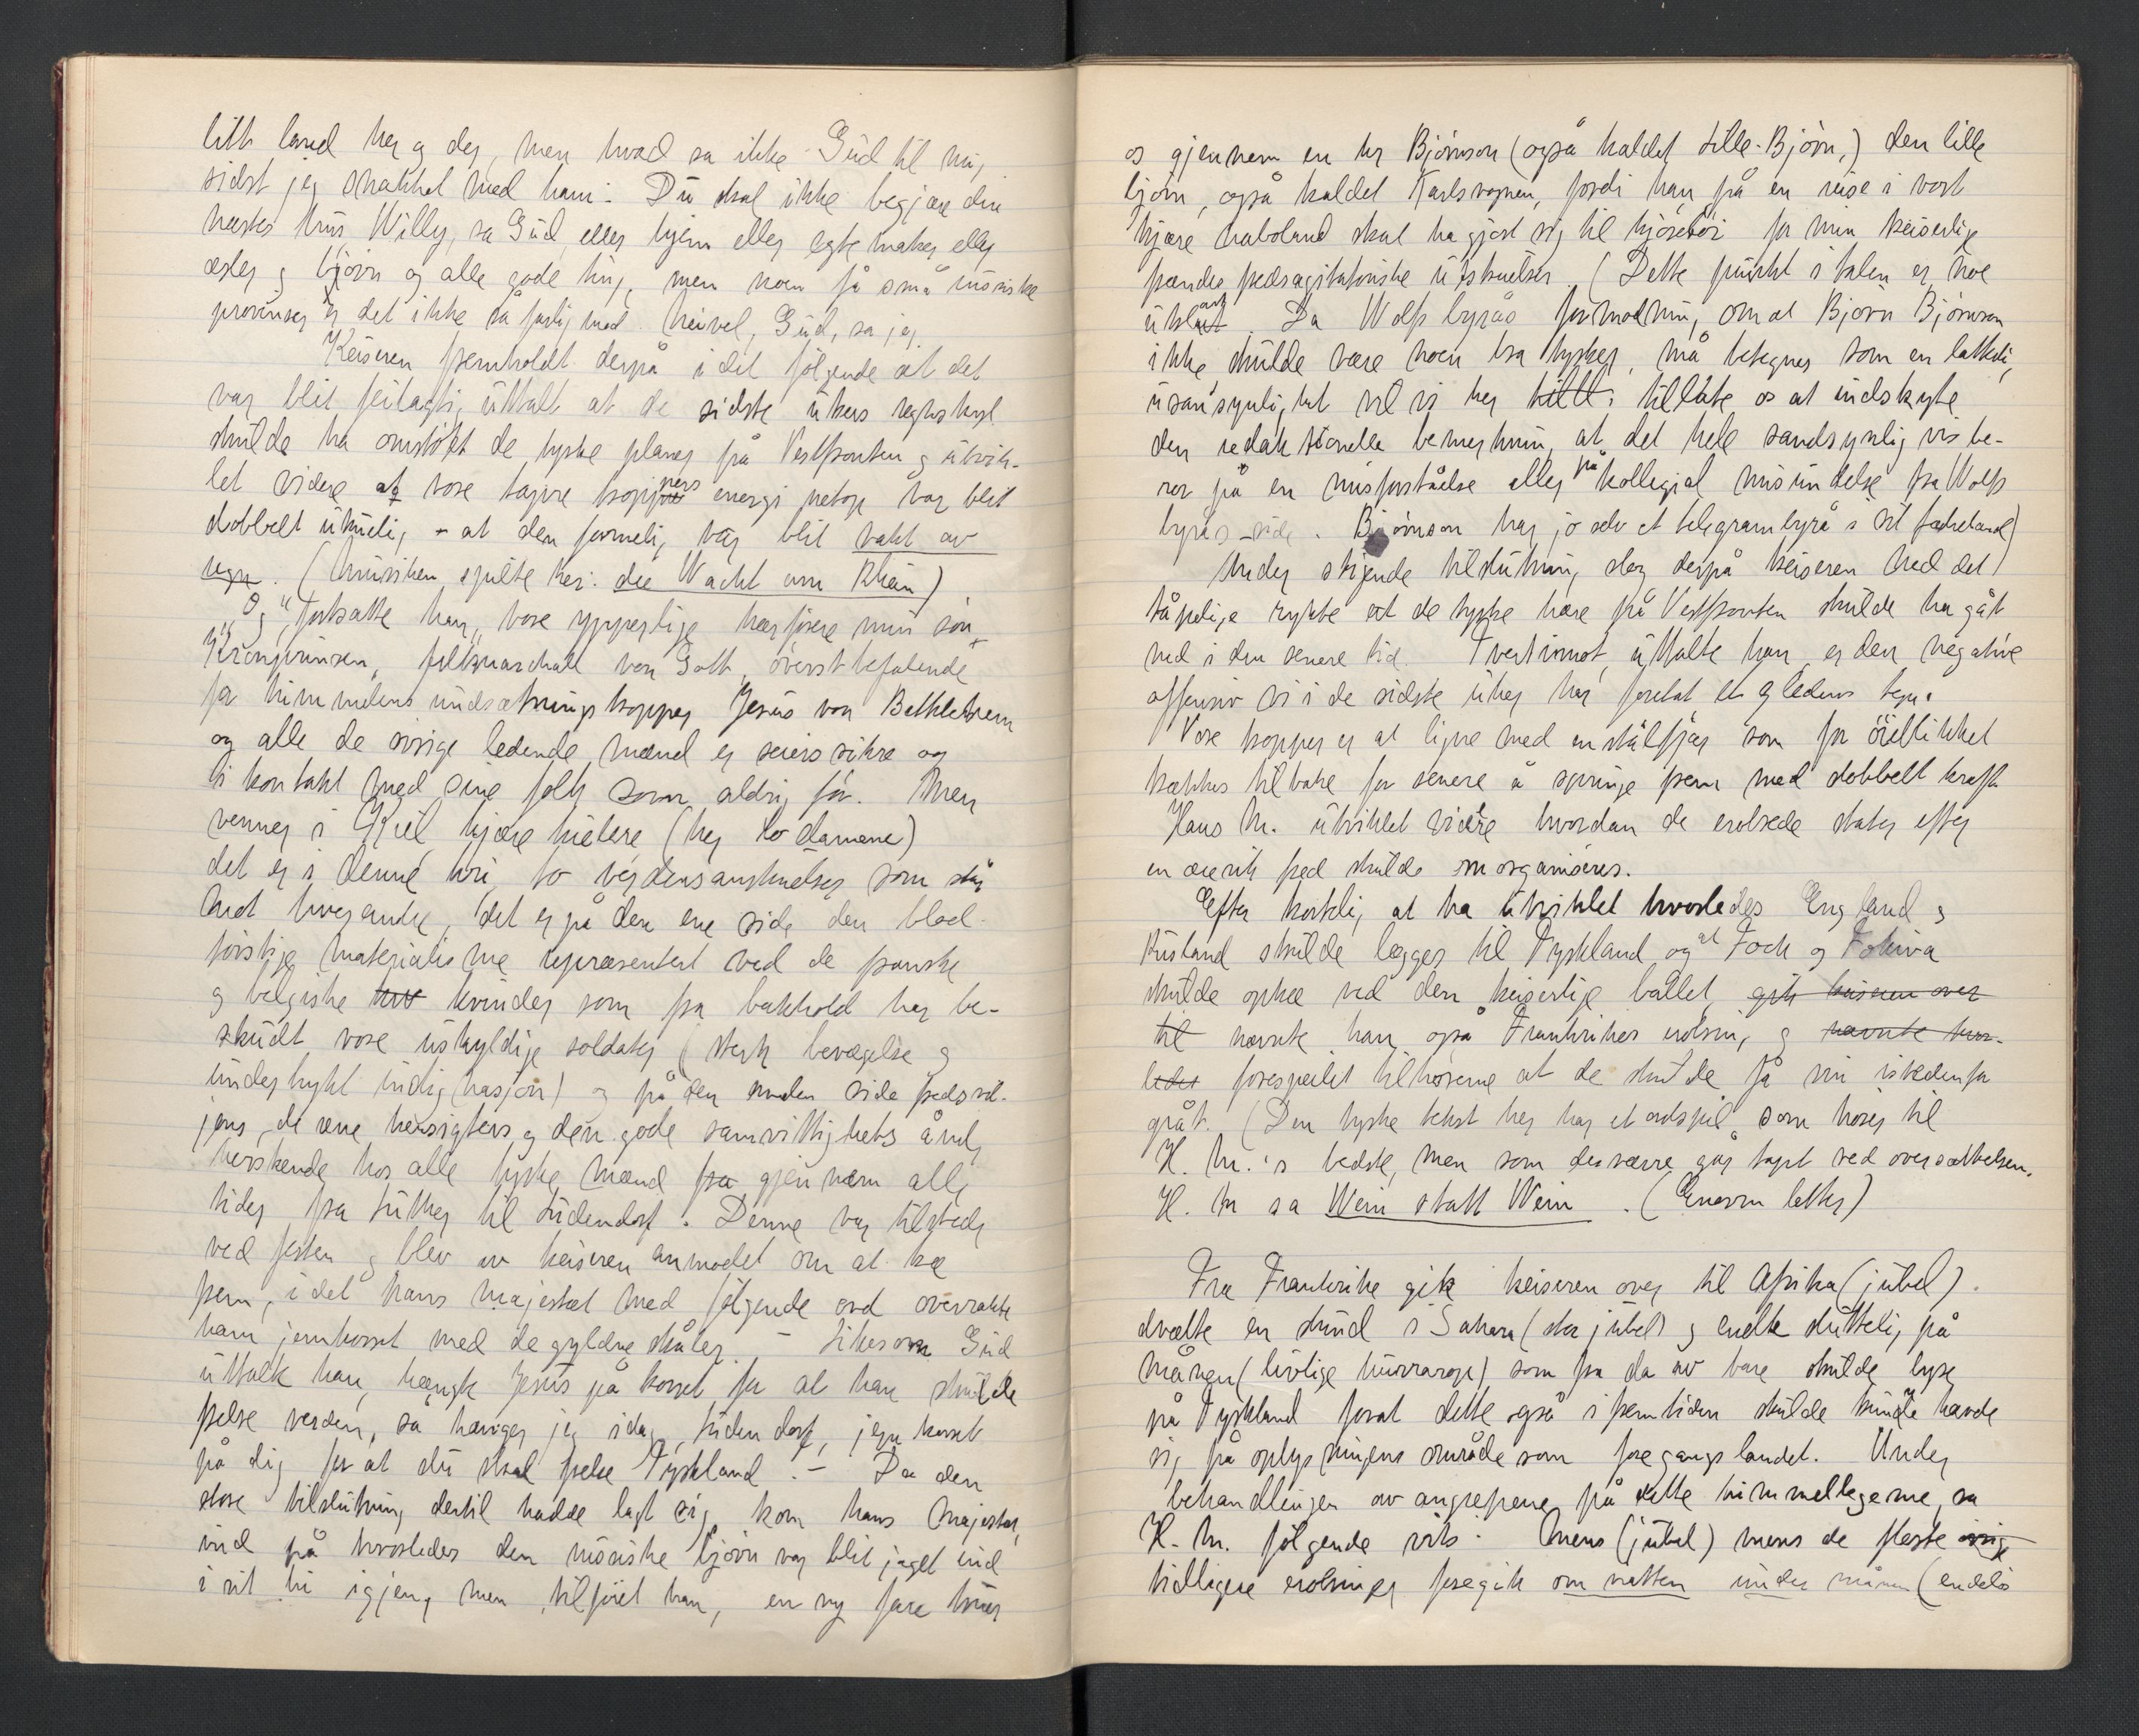 litt land her og der, men hvad sa ikke Gud til mig
sidst jeg snakket med ham: Du skal ikke begjære din
næstes hus, Willy, sa Gud, eller hjem eller egtemaker eller
æsler og björn og alle gode ting, men noen få små russiske
provinser er det ikke så farlig med. Neivel, Gud, sa jeg.
Keiseren fremholdt derpå i det fölgende at det
var blit feilagtig uttalt at de sidste ukers regnskyl
skulde ha omstöpt de tyske planer på Vestfronten og utvik-
let videre at vore tapre troppers energi netop var blit
dobbelt ukuelig - at den formelig var blit vakt av
regn. (Musikken spilte her: die Wacht am Rhein)
"Og", fortsatte han, "vore ypperlige hærförere min sön
Kronprinsen, feltmarschall von Gott, överstbefalende
for himmelens undsætningstropper Jesus von Bethlehem
og alle de övrige ledende mænd er seierssikre og
i kontakt med sine folk som aldrig för. Men
venner i Kiel kjære kielere (her lo damene)
det er i denne krig to verdensanskuelser som står
mot hverandre, det er på den ene side den blod-
törstige materialisme repræsentert ved de franske
og belgiske kvinder som fra bakhold har be-
skudt vore uskyldige soldater (sterk bevægelse og
undertrykt indignasjon) og på den anden side fredsvil-
jens, de rene hensigters og den gode samvittighets ånd,
herskende hos alle tyske mænd fra gjennem alle
tider fra Luther til Ludendorf. Denne var tilstede
ved festen og blev av keiseren anmodet om at træ
frem, idet hans majestæt med fölgende ord overrakte
ham jernkorset med de gyldne stråler. - Likesom Gud
uttalte han, hængte Jesus på korset for at han skulde
frelse verden, sa hænger jeg idag, Ludendorf, jernkorset
på dig for at du skal frelse Tyskland. - Da den
store tilslutning dertil hadde lagt sig, kom hans Majestæt
ind på hvorledes den russiske björn var blit jaget ind
i sit hi igjen, men, tilföiet han, en ny fare truer
os gjennem en hr Björnson (også kaldet Lille-Björn,) den lille
björn, også kaldet Karlsvognen, fordi han på en reise i vort
kjære naboland skal ha gjort sig til kjöretöi for min keiserlige
frændes fredsagitatoriske utskeielser. (Dette punkt i talen er noe
uklart. Da Wolfs byrås formodning om at Björn Björnson
ikke skulde være noen bra tysker, må betegnes som en latterlig
usandsynlighet vil vi her tillate os at indskyte
den redaktionelle bemerkning, at det hele sandsynligvis be-
ror på en misforståelse eller på kollegial misundelse fra Wolfs
byrås side. Björnson har jo selv et telegrambyrå i sit fædreland)
Under stigende tilslutning slog derpå keiseren ned det
tåpelige rykte at de tyske hære på Vestfronten skulde ha gåt
ned i den senere tid. Tvertimot, uttalte han, er den negative
offensiv vi i de sidste uker har foretat et gledens tegn.
Vore tropper er at ligne med en stålfjær som for öieblikket
trækkes tilbake for senere å springe frem med dobbelt kraft.
Hans M. utviklet videre hvordan de erobrede stater efter
en ærerik fred skulde omorganiseres.
Efter kortelig at ha utviklet hvorledes England og
Rusland skulde legges til Tyskland og at Foch og Fokina
skulde optræ ved den keiserlige ballet, gik keiseren over
til nævnte han også Frankrikes erobring og nævnte hvor-
ledes forespeilet tilhörerne at de skulde få vin istedenfor
gråt. (Den tyske tekst her har et ordspil som hörer til
H. M.'s bedste, men som desværre går tapt ved oversættelsen.
H. M sa Wein statt Wein. (Enorm latter)
Fra Frankrike gik keiseren over til Afrika (jubel).
dvælte en stund i Sahara (stor jubel) og endte sluttelig på
månen (livlige hurrarop) som fra da av bare skulde lyse
på Tyskland forat dette også i fremtiden skulde kunde hævde
sig på oplysningens område som foregangslandet. Under
behandlingen av angrepene på dette himmellegeme, sa
H. M. fölgende vits: Mens (jubel) mens de fleste övrige
tidligere erobringer foregik om natten under månen (endelös